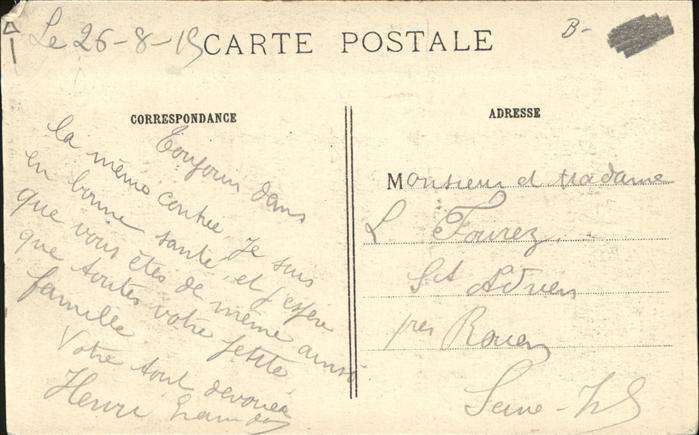 Le 26-8-15
CARTE POSTALE
B-
CORRESPONDANCE
Toujours dans
la même contrée. Je suis
en bonne santé, et j'espère
que vous êtes de même ainsi
que toutes votre petite
famille
Votre tout dévoué
Henri
ADRESSE
Monsieur et Madame
L Fourez
St Adrien
près Rouen
Seine-